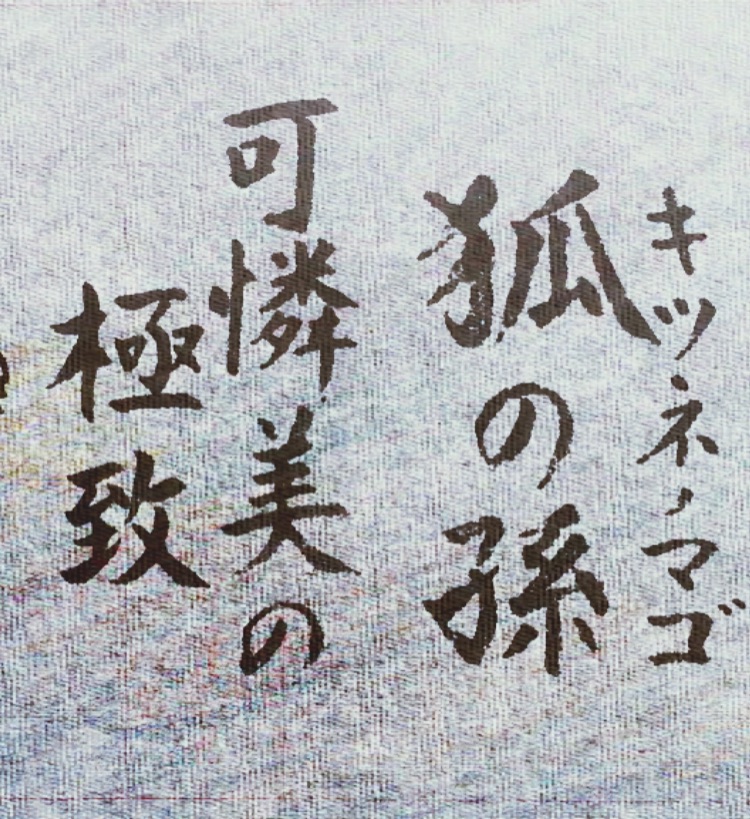 キツネノマゴ
狐の孫
可憐美の
極致